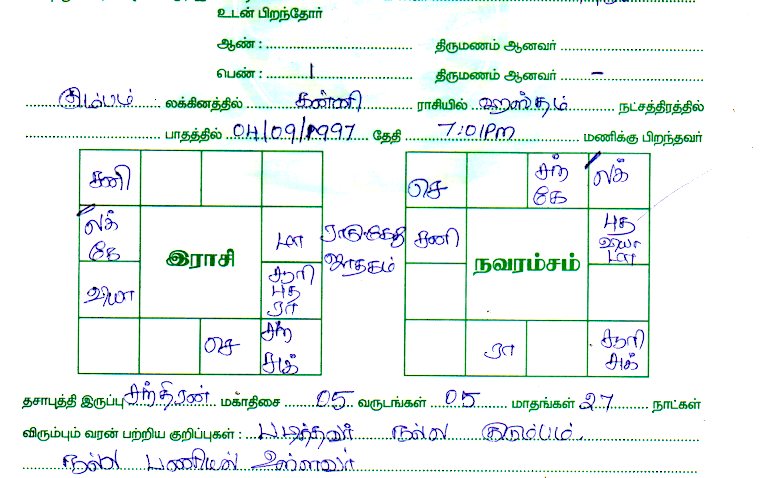 உடன் பிறந்தோர்
ஆண் : திருமணம் ஆனவர்
பெண் : 1 திருமணம் ஆனவர் -
கும்பம் லக்கினத்தில் கன்னி ராசியில் ஹஸ்தம் நட்சத்திரத்தில்
பாதத்தில் 04/09/1997 தேதி 7:01PM மணிக்கு பிறந்தவர்
சனி
லக்
கே
வியா
இராசி
மா
சூரி
புத
ரா
செ
சந்
சுக்
ராகுகேது
ஜாதகம்
செ
சந்
கே
லக்
சனி
நவரம்சம்
புத
வியா
மா
ரா
சூரி
சுக்
தசாபுத்தி இருப்பு சந்திரன் மகாதிசை 05 வருடங்கள் 05 மாதங்கள் 27 நாட்கள்
விரும்பும் வரன் பற்றிய குறிப்புகள் : படித்தவர் நல்ல குடும்பம்.
நல்ல பணியில் உள்ளவர்